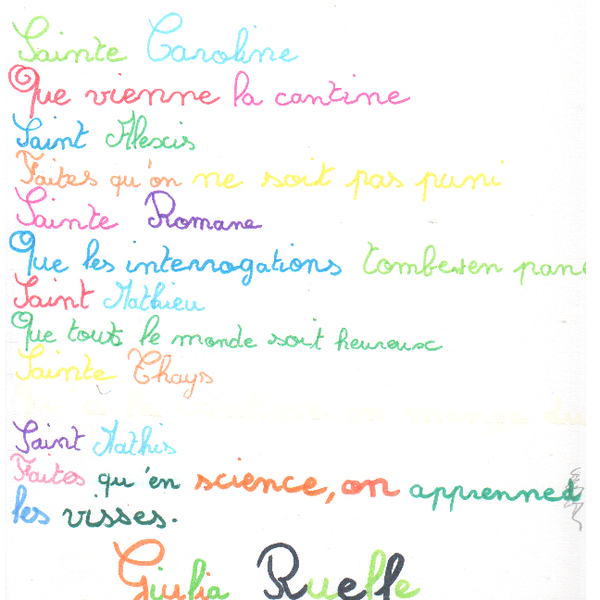 Sainte Caroline
Que vienne la cantine
Saint Alexis
Faites qu'on ne soit pas puni
Sainte Romane
Que les interrogations tombent en pane
Saint Mathieu
Que tout le monde soit heureux
Sainte Thays
mange du
Saint Mathis
Faites qu'en science, on apprenned
les visses.
Giulia Ruelle